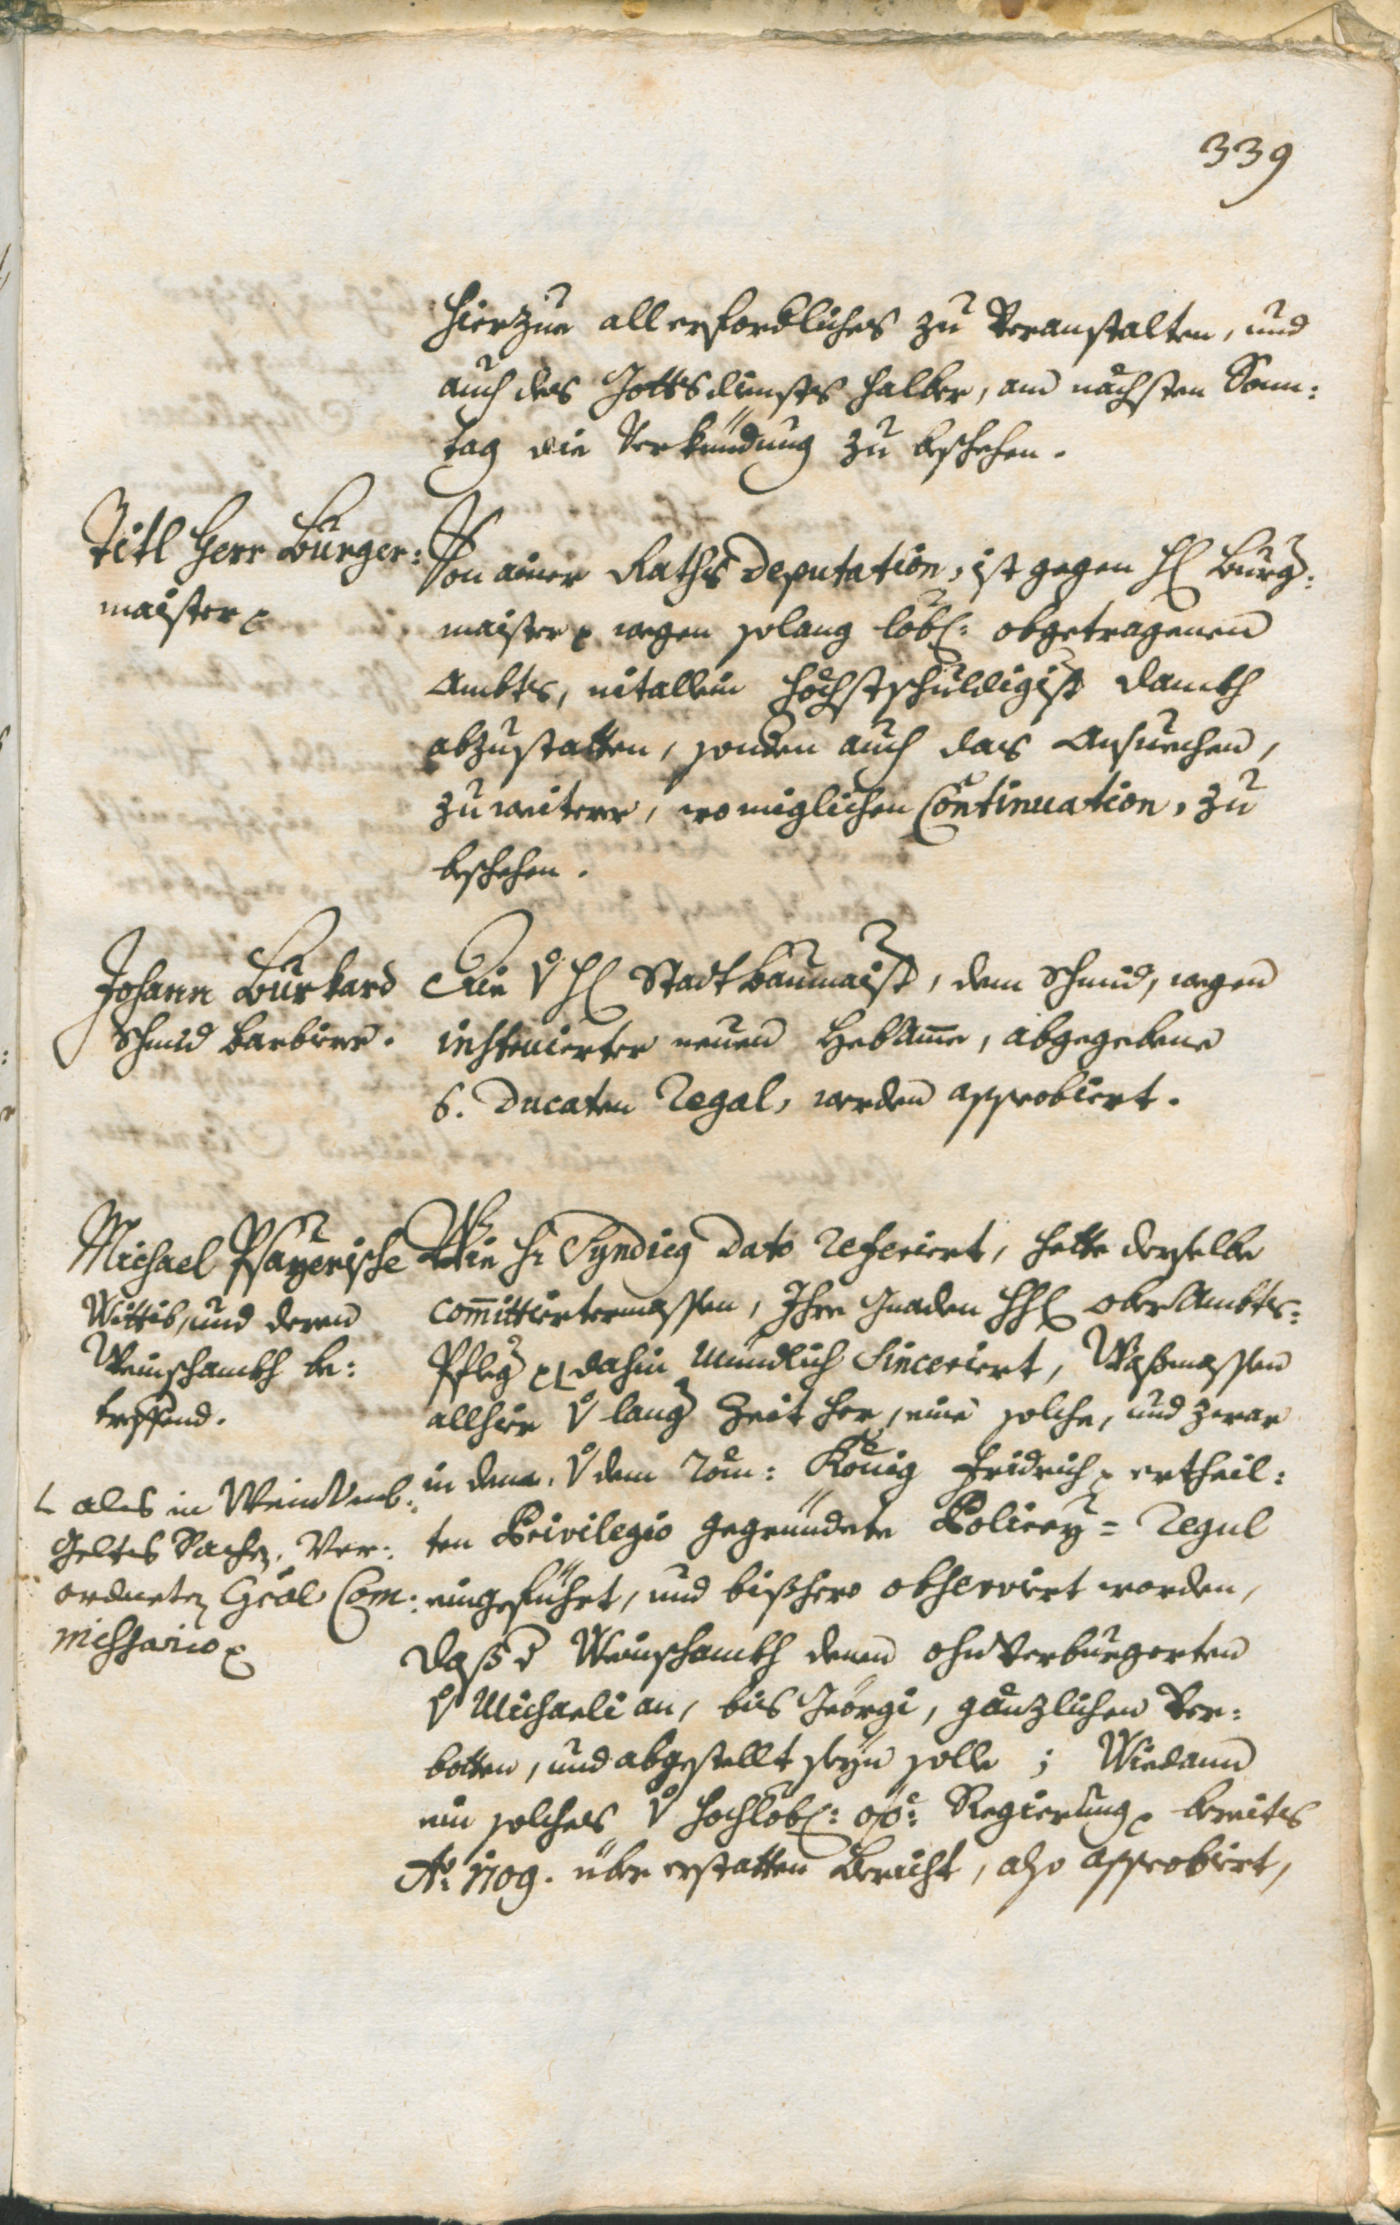 339
hierzue all erfordliches zu Veranstalten, und
auch des Gottsdiensts halber, am nächsten Sonn:
tag die Verkündung zu beschehen.
Titl Herr Burger:
maister
Von ainer Raths Deputation, ist gegen H Burg:
maister wegen solang löbl: obgetragenen
Ambts, nit allein höchstschuldigist danckh
abzustatten, sonden auch das Ansuechen,
zu weiterer, wo miglichen Continuation, zu
beschehen.
Johann Burkard
Schmid barbierer.
Die V H Stadtbaumaist, dem Schmid, wegen
instruierter neuen Hebamme, abgegebene
6. Ducaten Regal, werden approbiert.
Michael Psayerische
Wittib, und deren
Weinschanckh be:
treffend.
Wie Hr Syndicq Dato referiert, hette derselbe
committiertermassen, Ihro Gnaden HH ober Ambts:
Pfleg dahin mündlich sinceriert, Wasmassen
allhier V lang Zeit her, eine solche, und zwar
in dene, V dem Röm: König Fridrich ertheil:
ten Privilegio gegründete Policey = Regul
eingeführt, und bißhero observirt worden,
L als in Weinumb:
Geltes Sachen, Ver:
ordneten Gräl Com:
missario
Daß d Weinschanckh denen ohnverburgerten
V Michaeli an, bis Geörgi, gänzlichen Ver:
botten, und abgestellt seyn solle; Wiedann
ein solches V hochlöbl: oö: Regierung bereits
Ao: 1709. über erstatten Bericht, also approbirt,